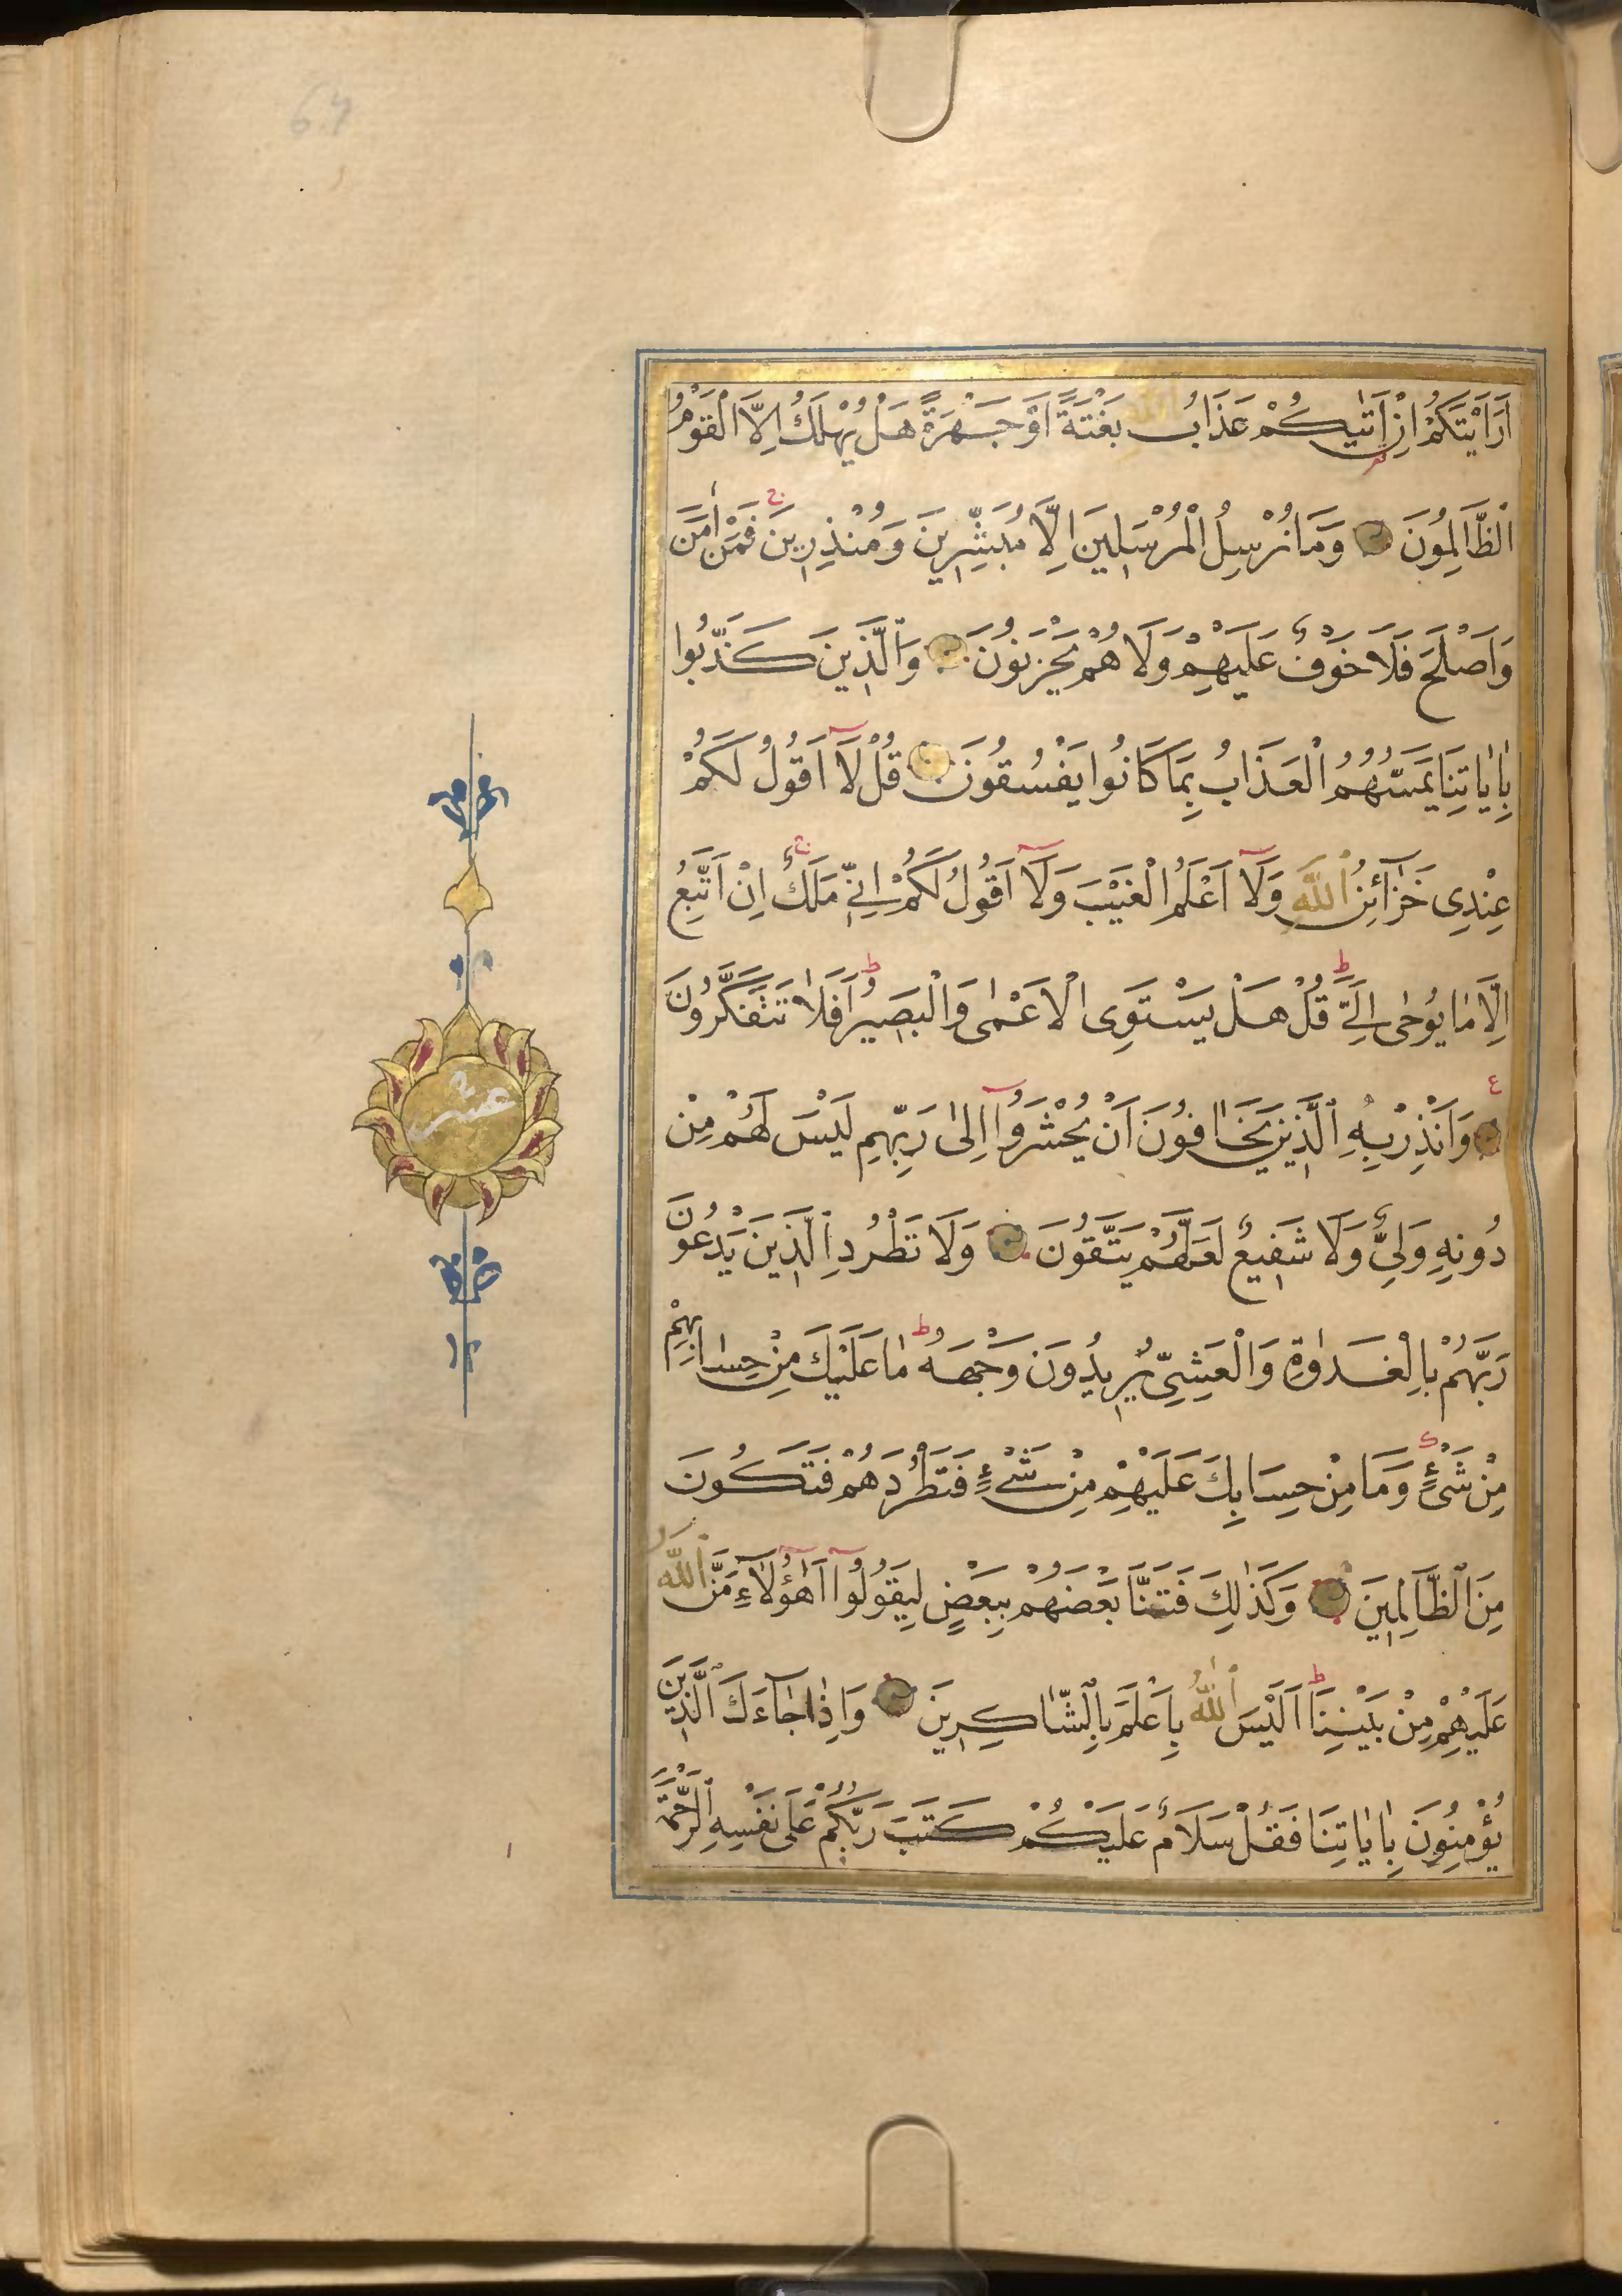 اَرَاَيْتَكُمْ اِنْ اَتٰيكُمْ عَذَابُ اللّٰهِ بَغْتَةً اَوْ جَهْرَةً هَلْ يُهْلَكُ اِلَّا الْقَوْمُ
الظَّالِمُونَ وَمَا نُرْسِلُ الْمُرْسَلِينَ اِلَّا مُبَشِّرِينَ وَمُنْذِرِينَ فَمَنْ اٰمَنَ
وَاَصْلَحَ فَلَا خَوْفٌ عَلَيْهِمْ وَلَا هُمْ يَحْزَنُونَ وَالَّذِينَ كَذَّبُوا
بِاٰيَاتِنَا يَمَسُّهُمُ الْعَذَابُ بِمَا كَانُوا يَفْسُقُونَ قُلْ لَا اَقُولُ لَكُمْ
عِنْدِى خَزَآئِنُ اللّٰهِ وَلَا اَعْلَمُ الْغَيْبَ وَلَا اَقُولُ لَكُمْ اِنِّى مَلَكٌ اِنْ اَتَّبِعُ
اِلَّا مَا يُوحٰى اِلَىَّ قُلْ هَلْ يَسْتَوِى الْاَعْمٰى وَالْبَصِيرُ اَفَلَا تَتَفَكَّرُونَ
وَاَنْذِرْ بِهِ الَّذِينَ يَخَافُونَ اَنْ يُحْشَرُوا اِلٰى رَبِّهِمْ لَيْسَ لَهُمْ مِنْ
دُونِهِ وَلِىٌّ وَلَا شَفِيعٌ لَعَلَّهُمْ يَتَّقُونَ وَلَا تَطْرُدِ الَّذِينَ يَدْعُونَ
رَبَّهُمْ بِالْغَدٰوةِ وَالْعَشِىِّ يُرِيدُونَ وَجْهَهُ مَا عَلَيْكَ مِنْ حِسَابِهِمْ
مِنْ شَىْءٍ وَمَا مِنْ حِسَابِكَ عَلَيْهِمْ مِنْ شَىْءٍ فَتَطْرُدَهُمْ فَتَكُونَ
مِنَ الظَّالِمِينَ وَكَذٰلِكَ فَتَنَّا بَعْضَهُمْ بِبَعْضٍ لِيَقُولُوا اَهٰؤُلَاءِ مَنَّ اللّٰهُ
عَلَيْهِمْ مِنْ بَيْنِنَا اَلَيْسَ اللّٰهُ بِاَعْلَمَ بِالشَّاكِرِينَ وَاِذَا جَآءَكَ الَّذِينَ
يُؤْمِنُونَ بِاٰيَاتِنَا فَقُلْ سَلَامٌ عَلَيْكُمْ كَتَبَ رَبُّكُمْ عَلٰى نَفْسِهِ الرَّحْمَةَ
عشر